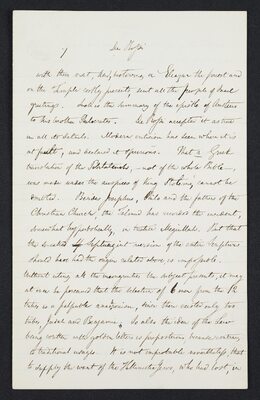 7 De Rossi
with them met, he, bestowing, on Eleazar the priest and
on the Temple costly presents, sent all the people of Israel
greetings. Such is the summary of the epistle of Aristeas
to his brother Philocrates. De Rossi accepted it as true
in all its details. Modern criticism has seen where it is
at fault, and declared it spurious. That a Greek
translation of the Pentateuch, – not of the whole Bible –,
was made under the auspices of King Ptolemy, cannot be
doubted. Besides Josephus, Philo and the fathers of the
Christian Church, the Talmud has recorded the incident,
somewhat hyperbolically, in treatise Megillah. But that
the so called Septuagint version of the entire Scriptures
should have had the origin related above is impossible.
Without citing all the incongruities the subject presents, it may
at once be perceived that the selection of 6 men from the 12
tribes is a palpable anachronism, since there existed only two
tribes, Judah and Benjamin. So also the idea of the Law
being written with golden letters is preposterous because contrary
to traditional usages. It is not improbable nevertheless that
to supply the want of the Hellenistic Jews, who had lost, in